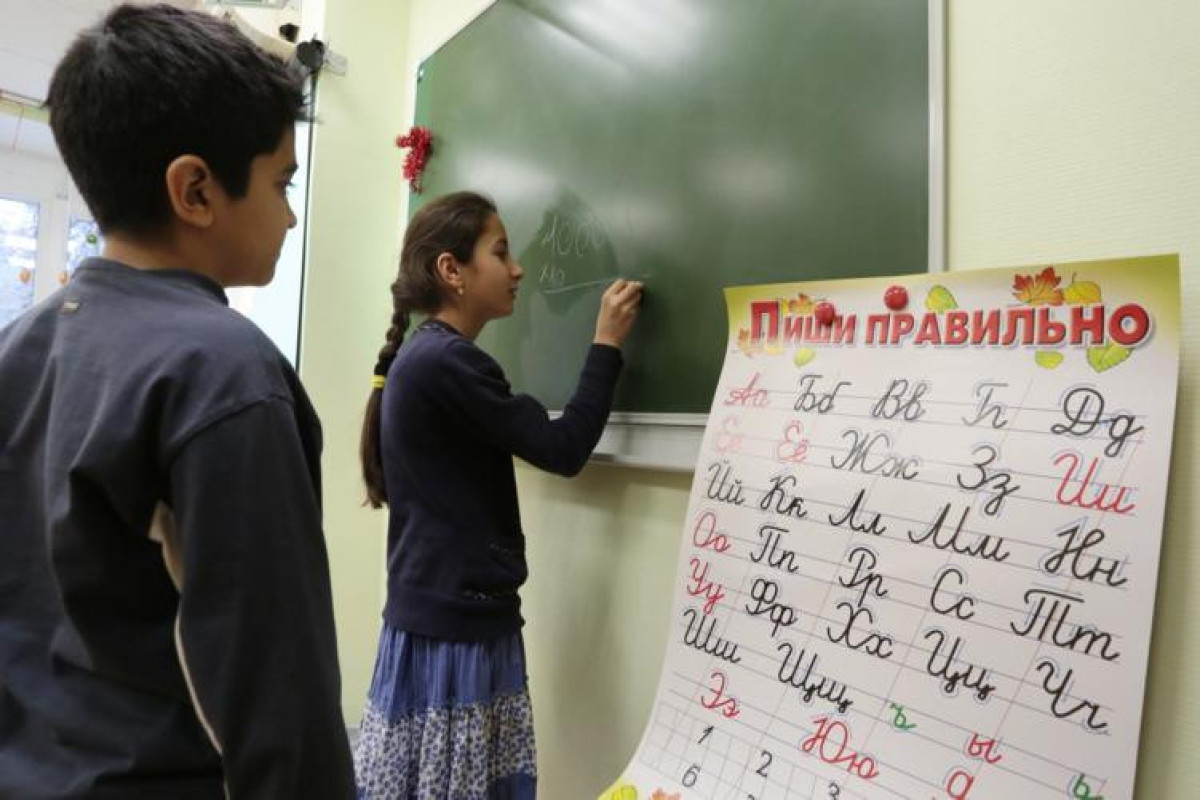 1000
Пиши правильно
Аа Бб Вв Гг Дд
Ее Ёё Жж Зз Ии
Йй Кк Лл Мм Нн
Оо Пп Рр Сс Тт
Уу Фф Хх Цц Чч
Шш Щщ ъ ы ь
Ээ Юю
1 2 3
6